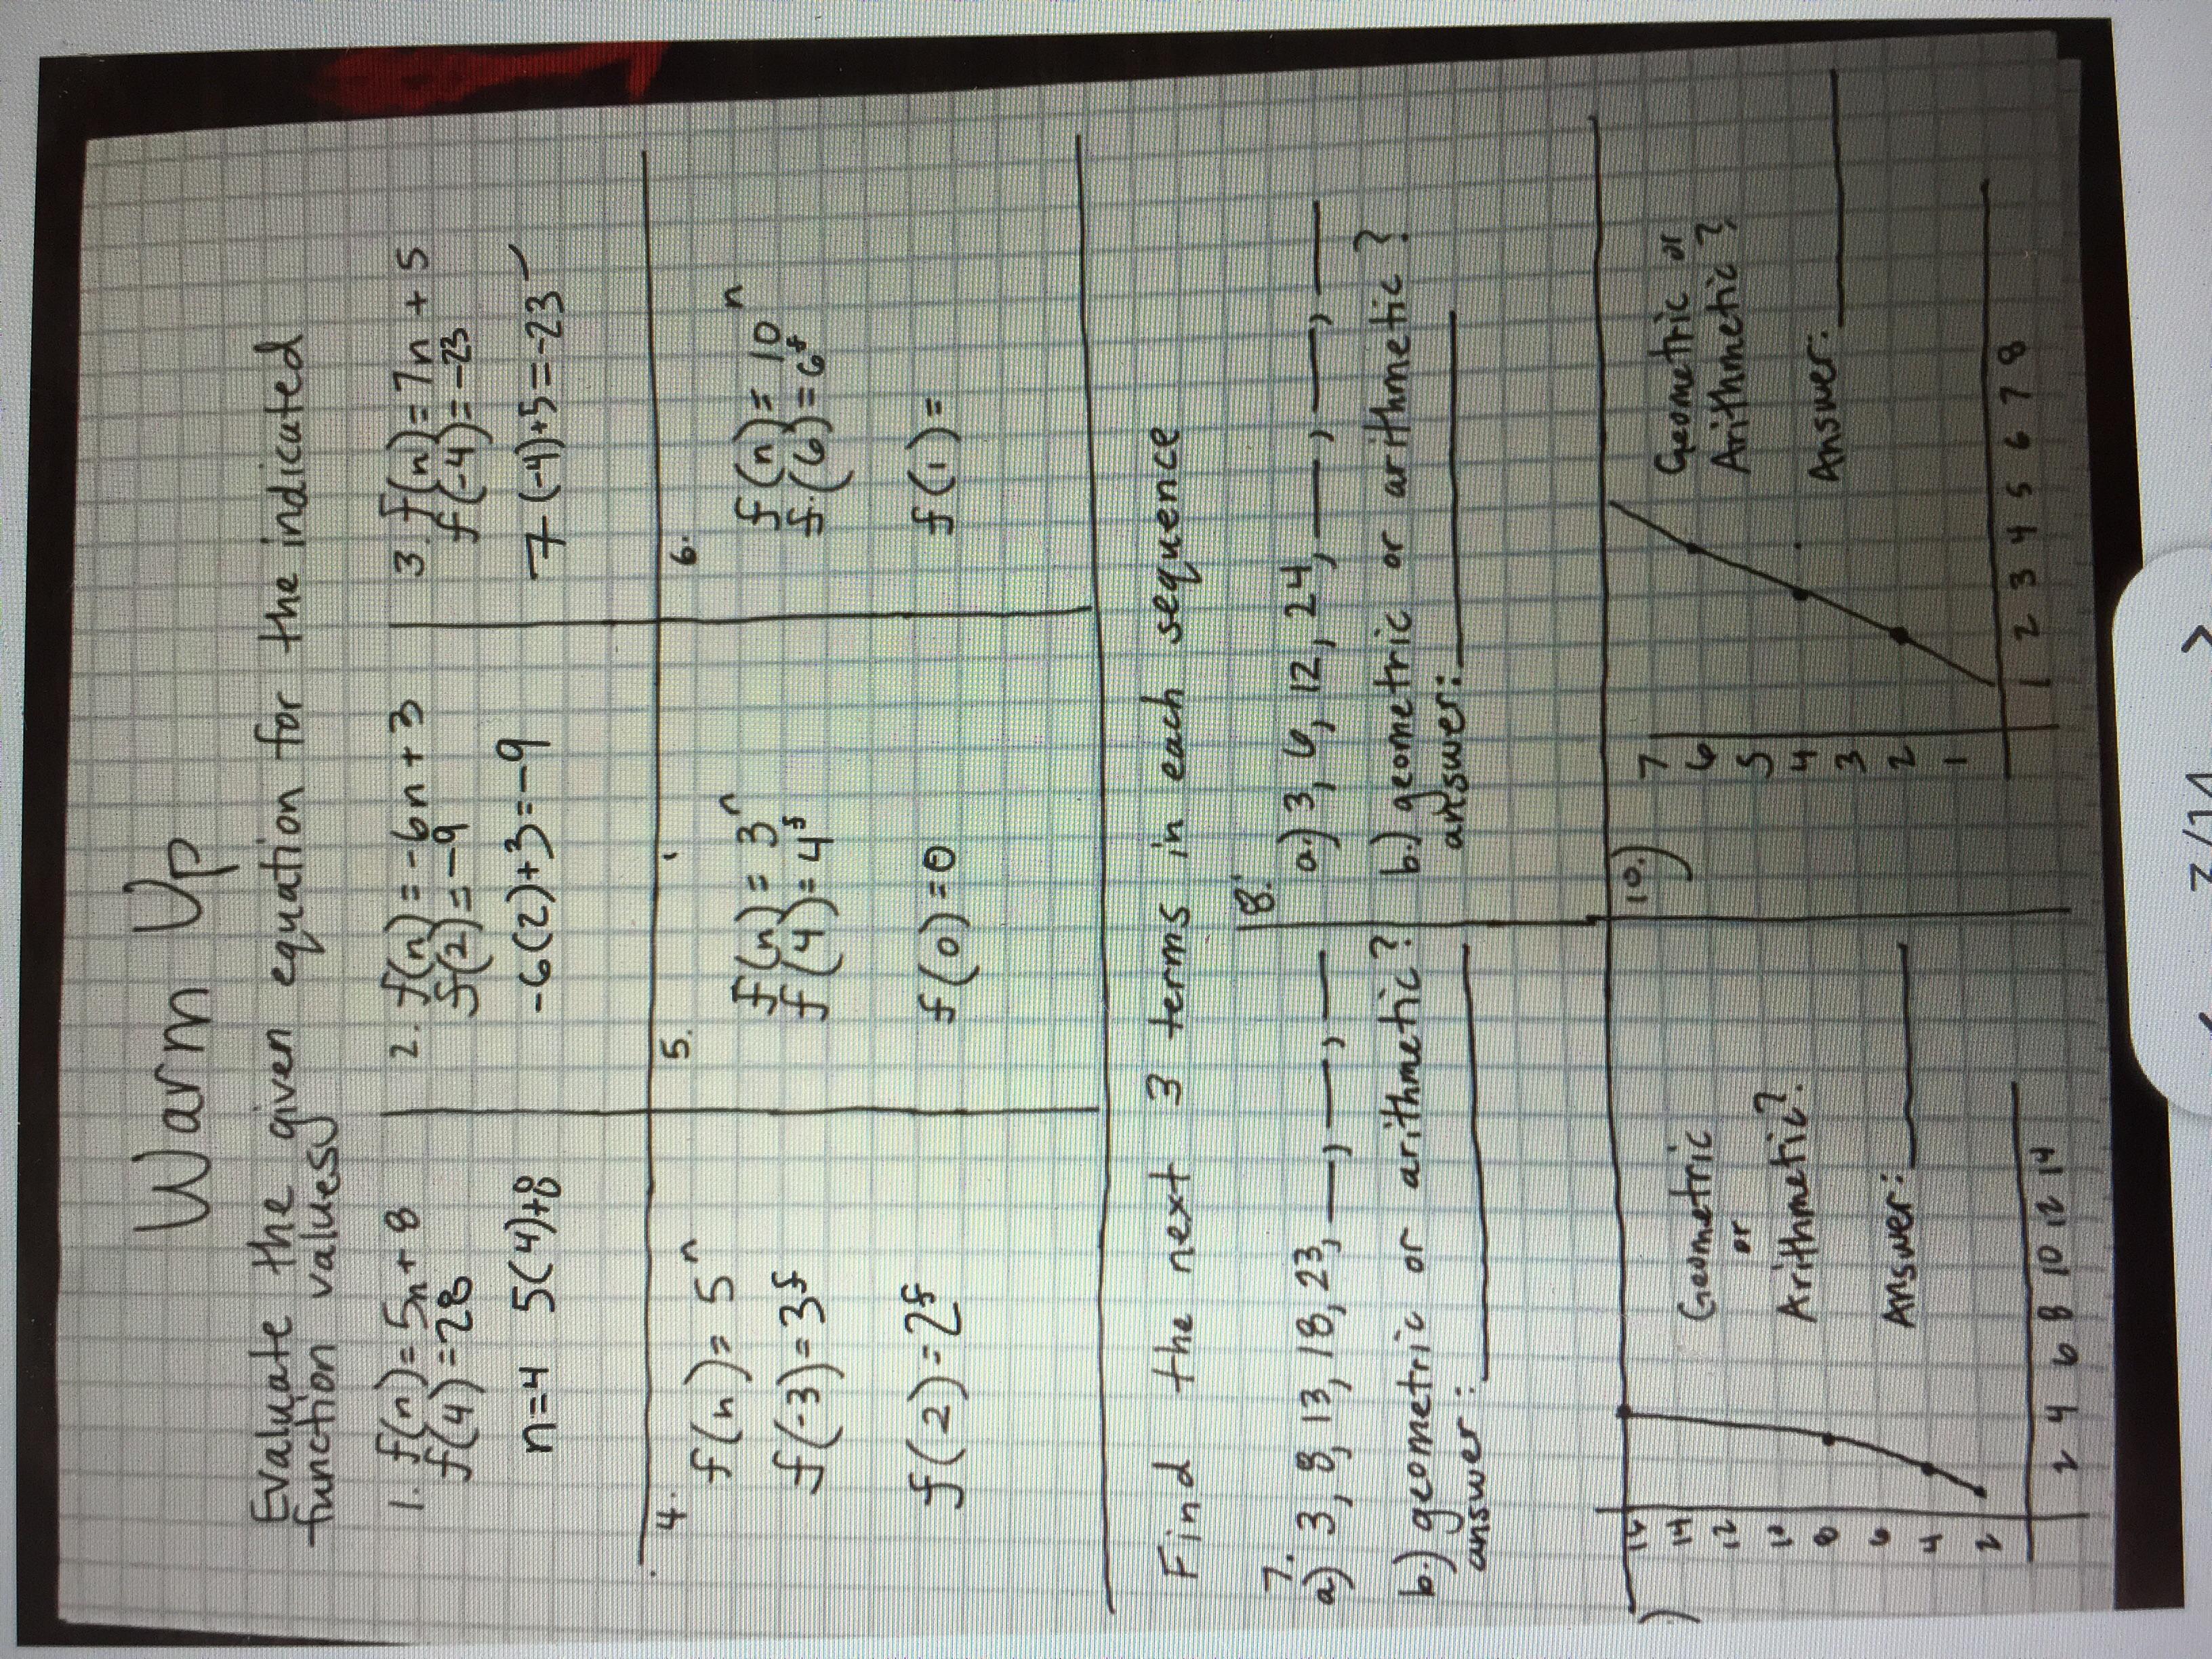 Warm Up
Evaluate the given equation for the indicated
function values
1. f(n)=5n+8
f(4)=28
n=4 5(4)+8
2. f(n)=-6n+3
f(2)=-9
-6(2)+3=-9
3. f(n)=7n+5
f(-4)=-23
7(-4)+5=-23
4.
f(n)=5ⁿ
f(-3)=3ᶠ
f(2)=2ᶠ
5.
f(n)=3ⁿ
f(4)=4ᶠ
f(0)=0
6.
f(n)=10ⁿ
f(6)=6ᶠ
f(1)=
Find the next 3 terms in each sequence
7.
a) 3, 8, 13, 18, 23, __, __, __
b.) geometric or arithmetic?
answer:
8.
a) 3, 6, 12, 24, __, __, __
b.) geometric or arithmetic?
answer:
)
16
14
12
10
8
6
4
2
2 4 6 8 10 12 14
Geometric
or
Arithmetic?
Answer:
10.)
7
6
5
4
3
2
1
1 2 3 4 5 6 7 8
Geometric or
Arithmetic?
Answer: